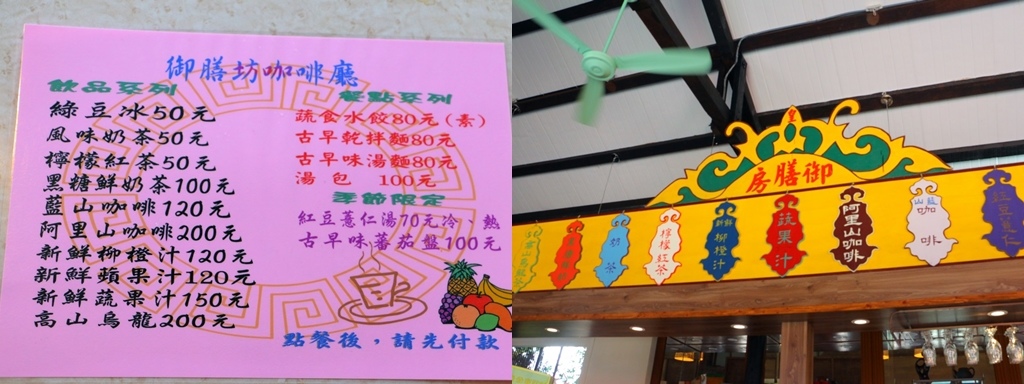 御膳坊咖啡廳
飲品系列
綠豆冰50元
風味奶茶50元
檸檬紅茶50元
黑糖鮮奶茶100元
藍山咖啡120元
阿里山咖啡200元
新鮮柳橙汁120元
新鮮蘋果汁120元
新鮮蔬果汁150元
高山烏龍200元
餐點系列
蔬食水餃80元(素)
古早乾拌麵80元
古早味湯麵80元
湯包 100元
季節限定
紅豆薏仁湯70元冷、熱
古早味蕃茄盤100元
點餐後，請先付款
皇
御膳房
高山烏龍
奶茶
檸檬紅茶
新鮮柳橙汁
蔬果汁
阿里山咖啡
藍山咖啡
紅豆薏仁